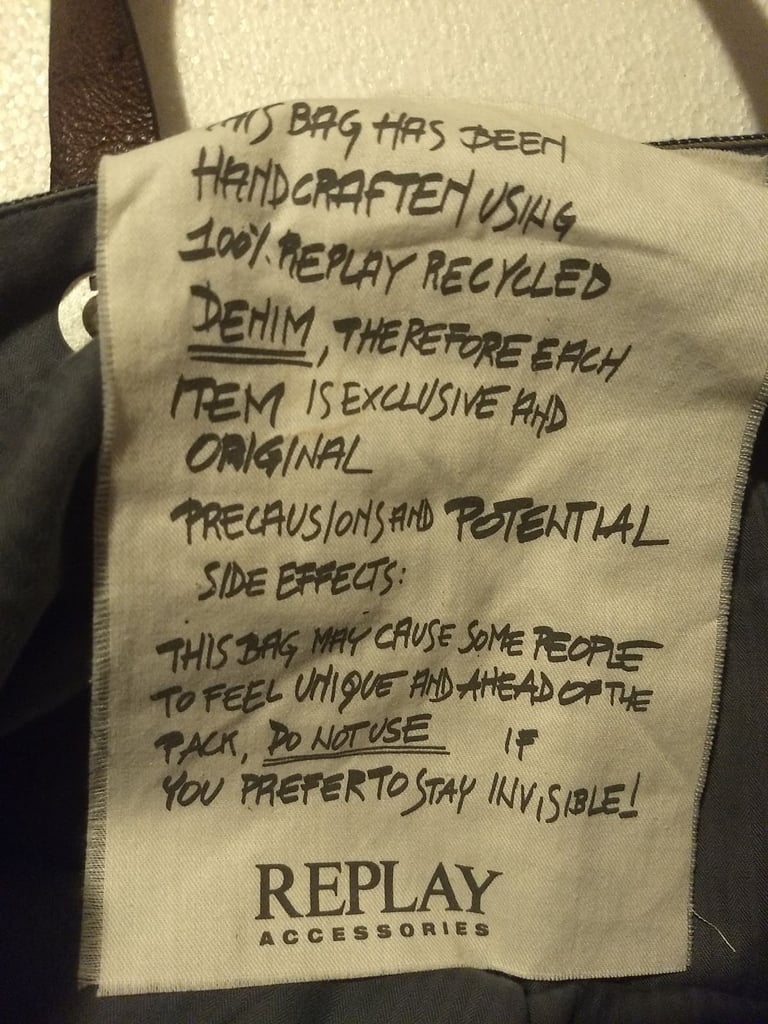 THIS BAG HAS BEEN
HANDCRAFTEN USING
100% REPLAY RECYCLED
DENIM, THEREFORE EACH
ITEM IS EXCLUSIVE AND
ORIGINAL
PRECAUSIONS AND POTENTIAL
SIDE EFFECTS:
THIS BAG MAY CAUSE SOME PEOPLE
TO FEEL UNIQUE AND AHEAD OF THE
PACK, DO NOT USE IF
YOU PREFER TO STAY INVISIBLE!
REPLAY
ACCESSORIES